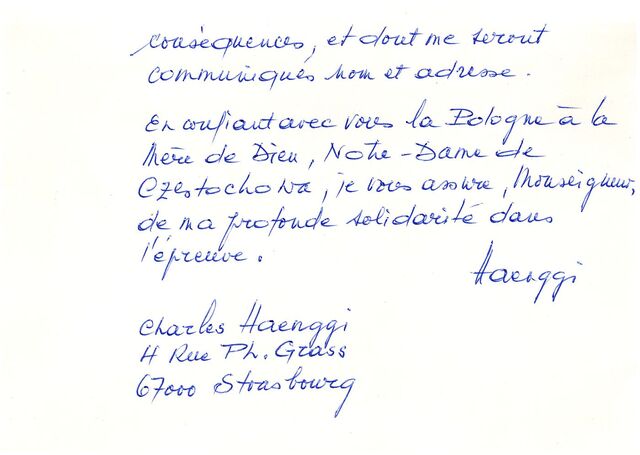 conséquences, et dont me seront
communiqués nom et adresse.
En confiant avec vous la Pologne à la
Mère de Dieu, Notre-Dame de
Czestochowa, je vous assure, Monseigneur,
de ma profonde solidarité dans
l'épreuve.
Haenggi
Charles Haenggi
4 Rue Ph. Grass
67000 Strasbourg